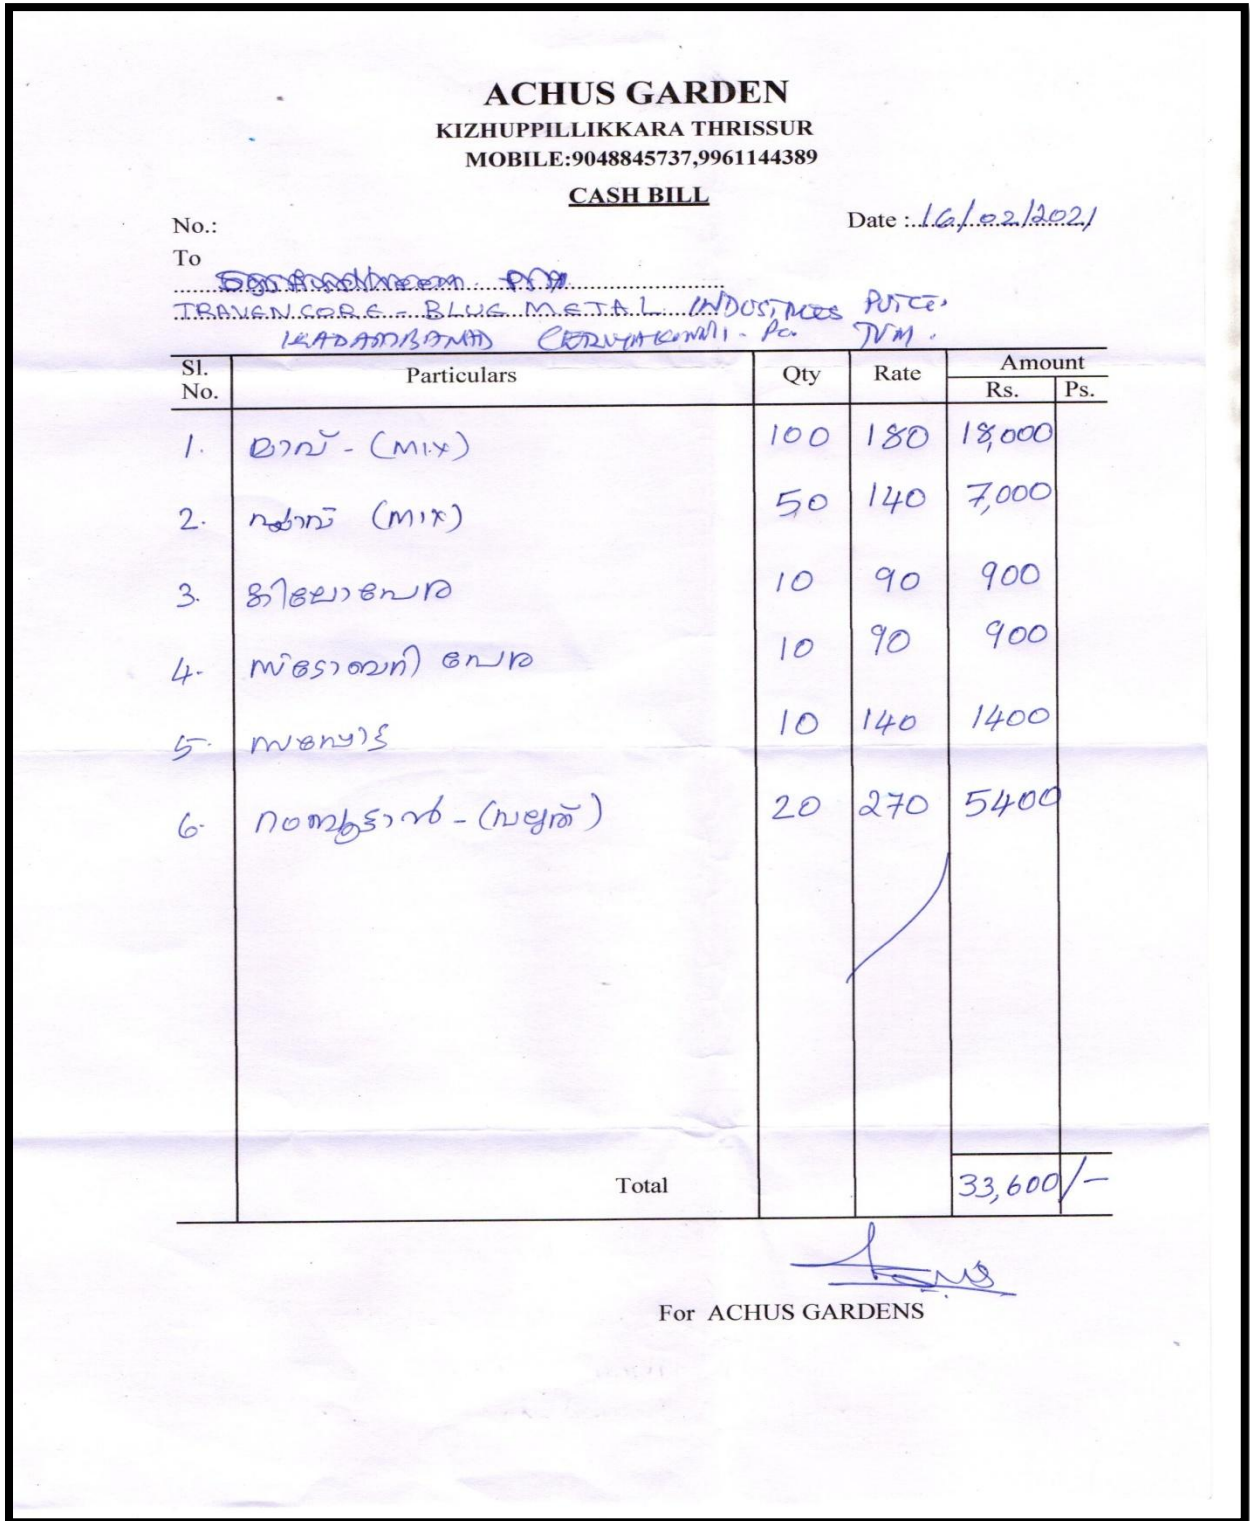 ACHUS GARDEN
KIZHUPPILLIKKARA THRISSUR
MOBILE:9048845737,9961144389
CASH BILL
No.:
Date : 16/02/2021
To
TRAVENCORE - BLUE METAL INDUSTRIES PVTCE.
KADAMBANAD TVM.
Sl. No. Particulars Qty Rate Amount
Rs. Ps.
1. മാവ് - (MIX) 100 180 18,000
2. പ്ലാവ് (MIX) 50 140 7,000
3. കിലോപേര 10 90 900
4. സ്ട്രോബറി പേര 10 90 900
5. സപ്പോട്ട 10 140 1400
6. റംബൂട്ടാൻ - (വലുത്) 20 270 5400
Total 33,600/-
For ACHUS GARDENS